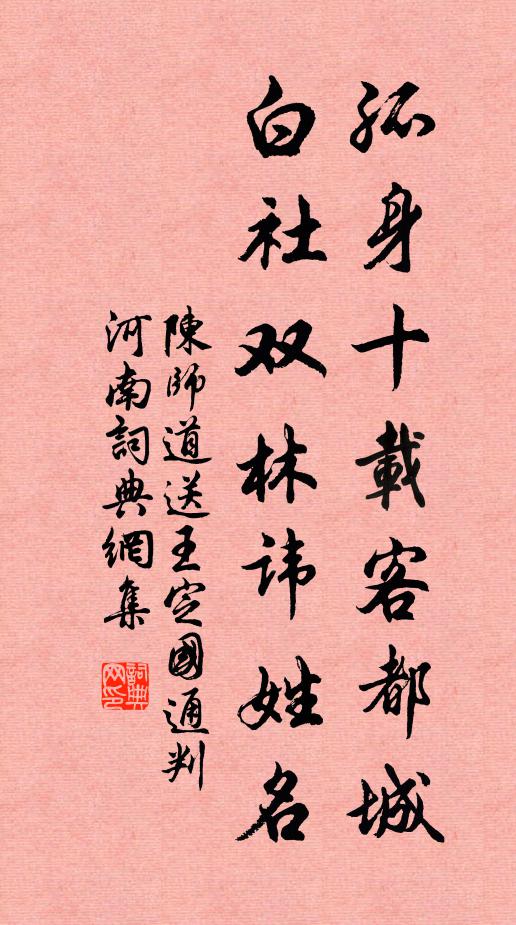 孤身十載客都城
白社双林讳姓名
陳師道送王定國通判
河南詞典網集
詞典
网印